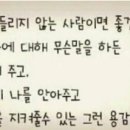 들리지 않는 사람이면 좋겠
에 대해 무슨말을 하든
주고.
나를 안아주고
지켜줄수 있는 그런 용감